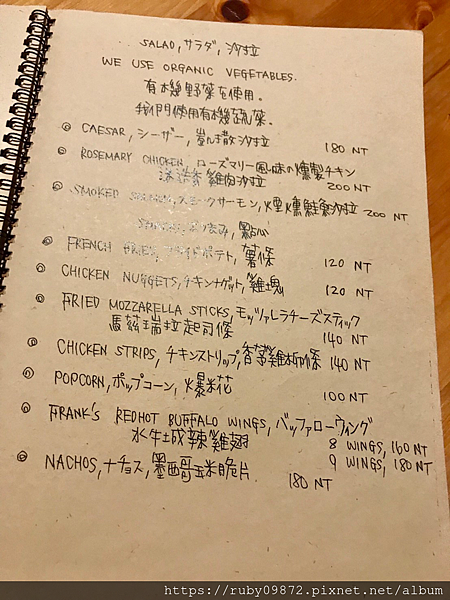 SALAD, サラダ, 沙拉
WE USE ORGANIC VEGETABLES.
有機野菜を使用。
我們使用有機蔬菜。
CAESAR, シーザー, 凱撒沙拉 180 NT
ROSEMARY CHICKEN, ローズマリー風味の燻製チキン
迷迭香雞肉沙拉 200 NT
SMOKED スモークサーモン, 煙燻鮭魚沙拉 200 NT
點心
FRENCH FRIES, フライドポテト, 薯條 120 NT
CHICKEN NUGGETS, チキンナゲット, 雞塊 120 NT
FRIED MOZZARELLA STICKS, モッツァレラチーズスティック
馬茲瑞拉起司條 140 NT
CHICKEN STRIPS, チキンストリップ, 雞柳條 140 NT
POPCORN, ポップコーン, 爆米花 100 NT
FRANK'S REDHOT BUFFALO WINGS, バッファローウィング
水牛城辣雞翅 8 WINGS, 160 NT
9 WINGS, 180 NT
NACHOS, ナチョス, 墨西哥玉米脆片 180 NT
https://ruby09872.pixnet.net/album